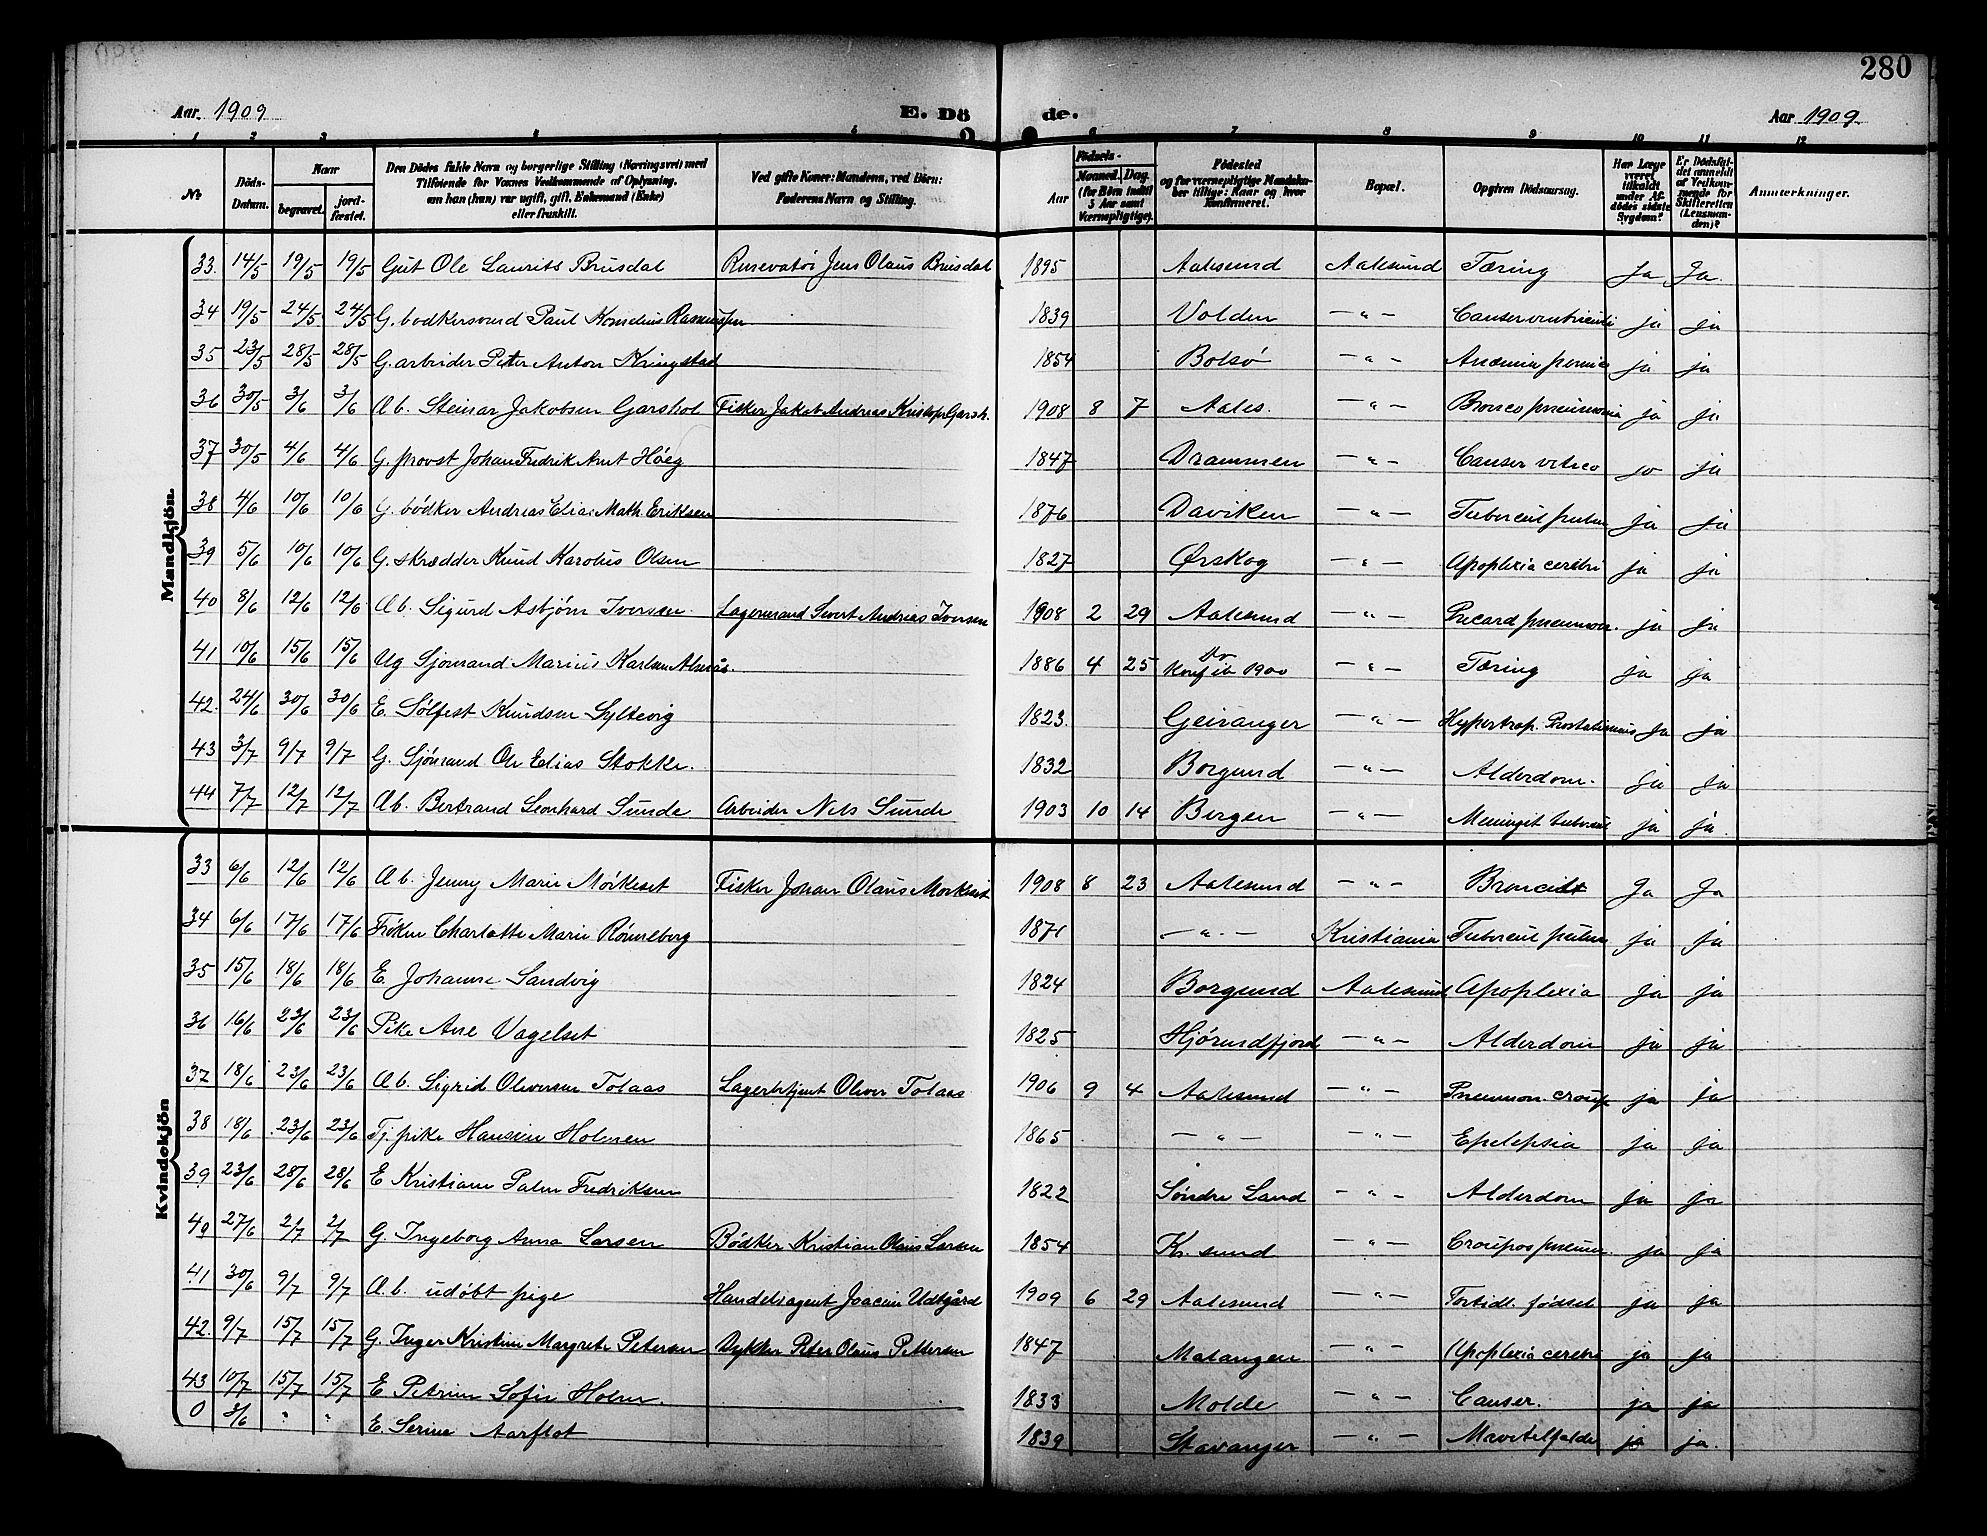 280
Aar 1909 E. Dö de. Aar 1909
1 2 3 5 4 6 7 8 9 10 11 12
No Döds-Datum. Naar begravet. jordfæstet. Den Dödes fulde Navn og borgerlige Stilling (Næringsvei) med Tilföiende for Voxnes Vedkommende af Oplysning, om han (hun) var ugift, gift, Enkemand (Enke) eller fraskilt. Ved gifte Koner: Mandens, ved Börn: Faderens Navn og Stilling. Födsels- Aar Maaned. Dag. (for Börn indtil 5 Aar samt Værnepligtige). Födested og for værnepligtige Mandskaber tillige: Naar og hvor konfirmeret. Bopæl. Opgiven Dödsaarsag. Har Læge været tilkaldt under Afdödes sidste Sygdom? Er Dödsfaldet anmeldt af Vedkommende for Skifteretten (Lensmanden)? Anmærkninger.
Mandkjön.
33 14/5 19/5 19/5 Gut Ole Laurits Brusdal Jens Olaus Brusdal 1895 Aalesund Aalesund Tæring Ja Ja
34 19/5 24/5 24/5 G. bødkersvend Paul Kornelius Rasmussen 1839 Volden — " — Canser ventriculi ja ja
35 23/5 28/5 28/5 G. arbeider Peter Anton Kringstad 1854 Bolsø — " — Anæmia ja ja
36 30/5 3/6 3/6 Æb. Steinar Jakobsen Garshol Fisker Jakob Andreas Kristofr Garsh. 1908 8 7 Aales. — " — Bronco pneumonia ja ja
37 30/5 4/6 4/6 G. provst Johan Fredrik Arnt Høeg 1847 Drammen — " — Canser ja ja
38 4/6 10/6 10/6 G. bødker Andreas Elias Math. Eriksen 1876 Daviken — " — Tubercul pulm ja ja
39 5/6 10/6 10/6 G. skrædder Knud Karolus Olsen 1827 Ørskog — " — Apoplexia cerebri ja ja
40 8/6 12/6 12/6 Æb. Sigurd Asbjørn Iversen Lagermand Sivert Andreas Iversen 1908 2 29 Aalesund — " — pneumon. ja ja
41 10/6 15/6 15/6 Ug Sjømand Marius Karlsen Alnæs. 1886 4 25 Konf 1900 — " — Tæring ja ja
42. 24/6 30/6 30/6 E. Sølfest Knudsen Syltevig 1823. Geiranger — " — Hypertrop. Prostat ja ja
43 3/7 9/7 9/7 G. Sjømand Ole Elias Stokke. 1832 Borgund — " — Alderdom. ja ja
44 7/7 12/7 12/7 Æb. Bertrand Leonhard Sunde Arbeider Nils Sunde 1903 10 14 Bergen — " — Meningit tubercul ja ja.
Kvindekjön
33 6/6 12/6 12/6 Æb. Jenny Marie Mørkeset Fisker Johan Olaus Mørkeset 1908 8 23 Aalesund — " — Broncit Ja Ja
34 6/6 17/6 17/6 Frøken Charlotte Marie Rønneberg 1871 — " — Kristiania Tubercul pulm ja ja
35 15/6 18/6 18/6 E. Johanne Sandvig 1824 Borgund Aalesund Apoplexia ja ja
36 16/6 23/6 23/6 Pike Ane Vagelset 1825 Hjørundfjord — " — Alderdom ja ja
37 18/6 23/6 23/6 Æb. Sigrid Oliversen Tolaas Lagerbetjent Oliver Tolaas 1906 9 4 Aalesund — " — Pneumon. croup ja ja
38 18/6 23/6 23/6 Tj. pike Hansine Holmen 1865 — " — — " — Epelepsia ja ja
39 23/6 28/6 28/6 E Kristiane Palm Fredriksen 1822 Søndre Land — " — Alderdom ja ja
40 27/6 2/7 2/7 G. Ingeborg Anna Larsen Bødker Kristian Olaus Larsen 1854 Kr. sund — " — Croupos pneum. ja ja
41 30/6 9/7 9/7 Æ.b. udøbt pige Handelsagent Joacim Udtgård 1909 6 29 Aalesund — " — Fortidl. fødsel ja ja
42. 9/7 15/7 15/7 G. Inger Kristine Margrete Petersen Dykker Peter Olaus Pettersen 1847 Malangen — " — Apoplexia cerebri ja ja
43 10/7 15/7 15/7 E Petrine Sofie Holm. 1833 Molde — " — Canser. ja ja
0 3/6 " " E. Serine Aarflot 1839 Stavanger — " — ja ja.